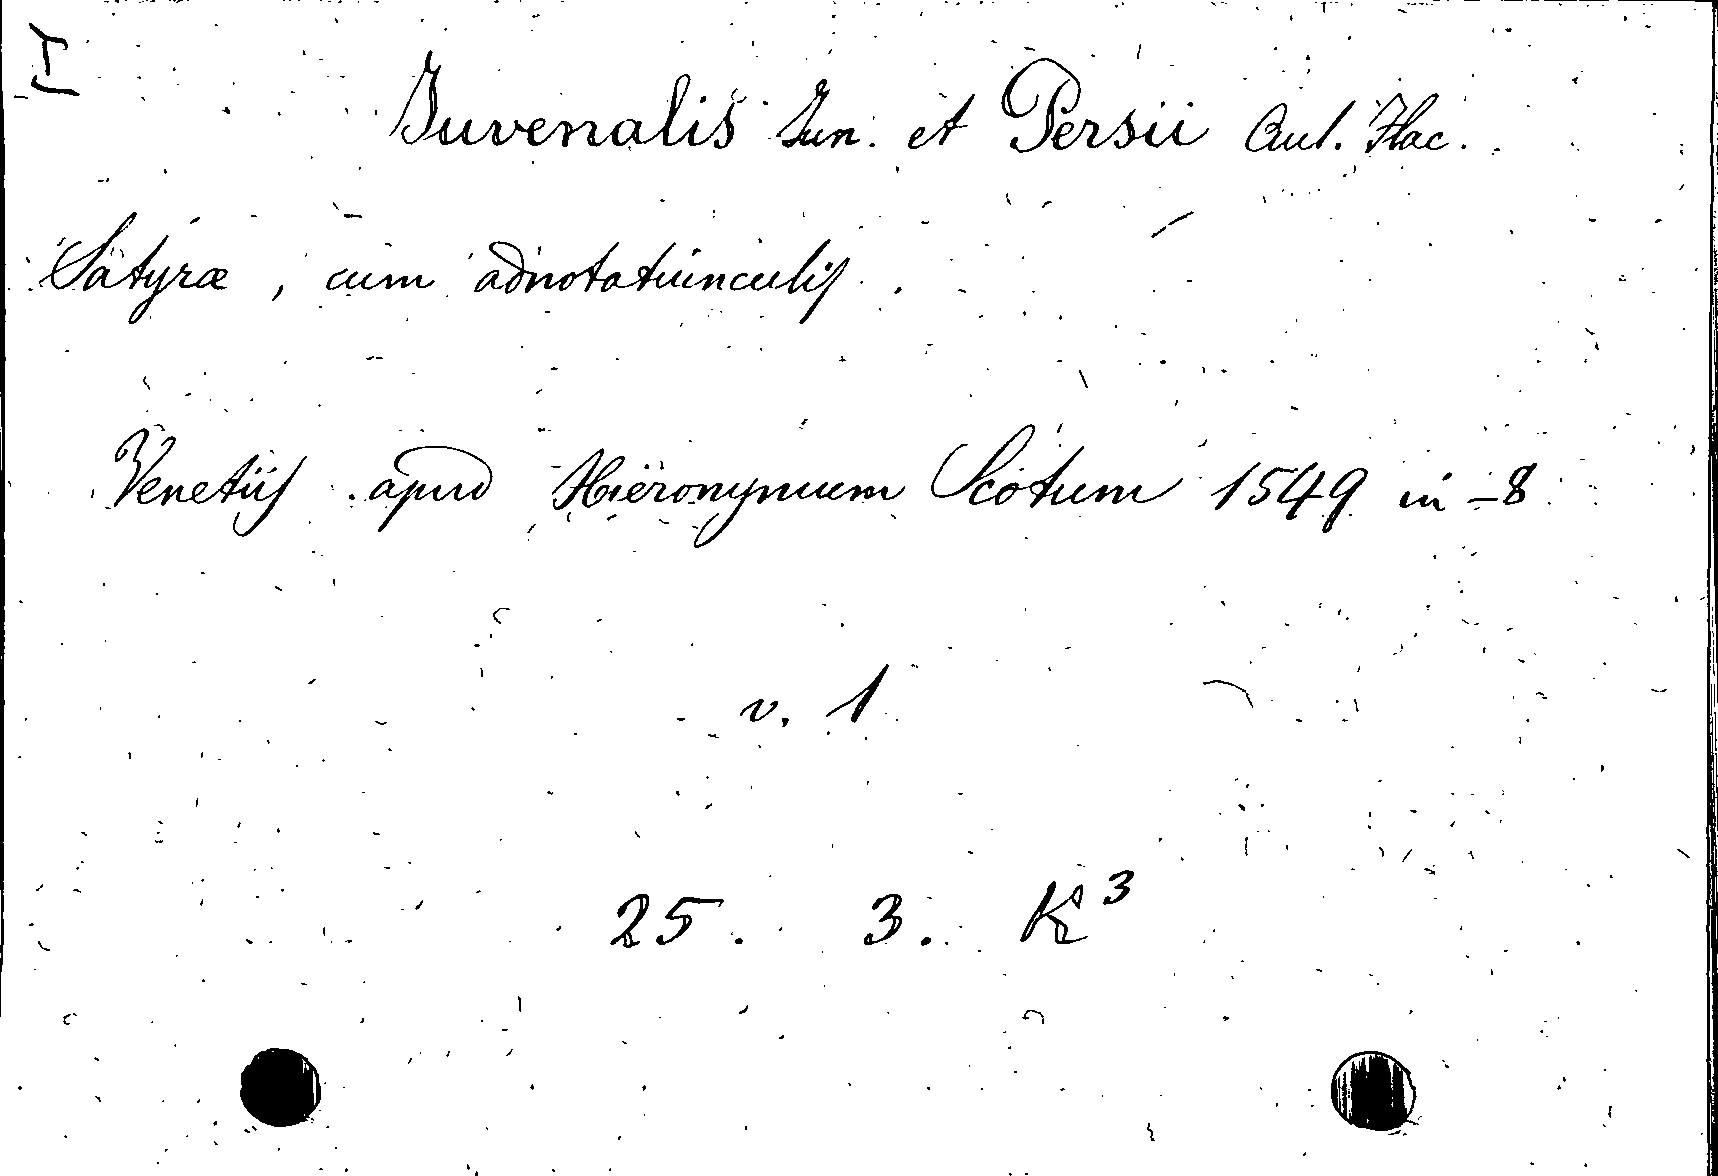 I
Juvenalis Jun. et Persii Aul. Flac.
Satyræ, cum adnotatiunculis.
Venetiis apud Hieronymum Scotum 1549 in-8
v. 1
25. 3. K³